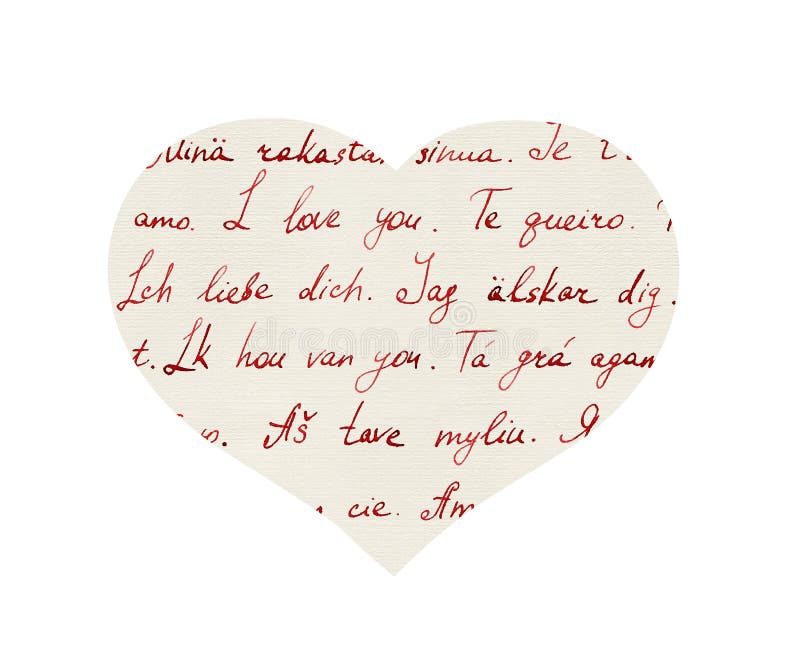 Minä rakastan sinua. Te
amo. I love you. Te queiro.
Ich liebe dich. Jag älskar dig.
t. Ik hou van you. Tá grá agam
Aš tave myliu. Я
cie. Am
dreamstime